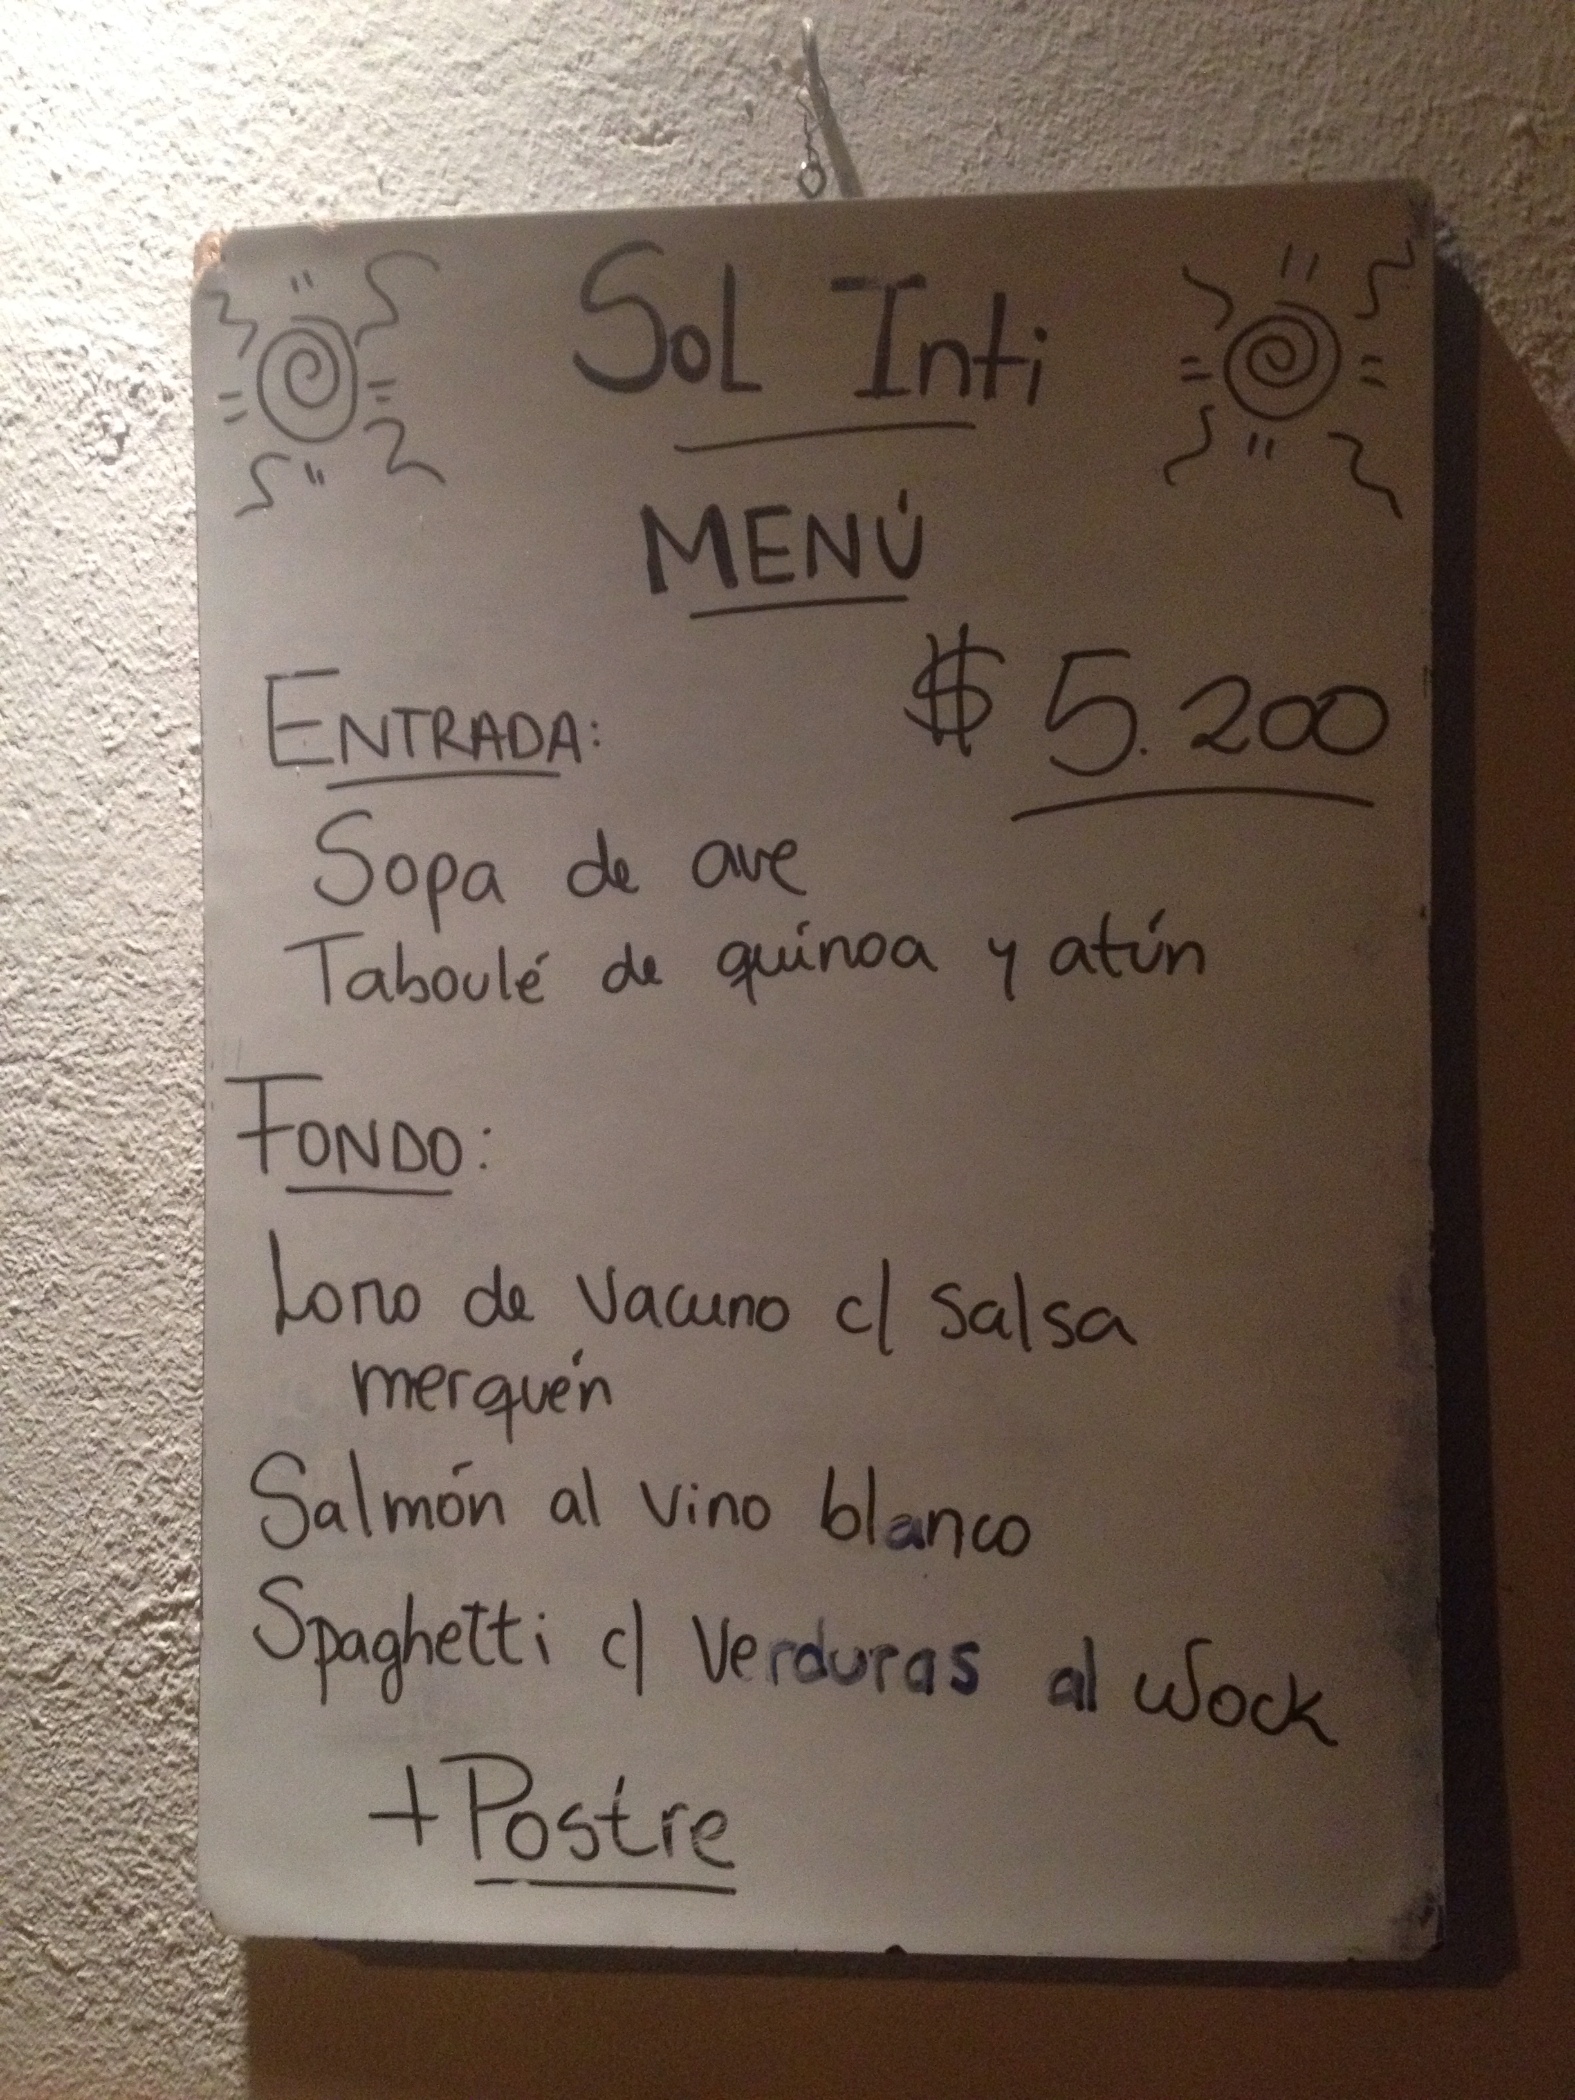 Sol Inti
MENÚ
ENTRADA:
$ 5.200
Sopa de ave
Taboulé de quínoa y atún
FONDO:
Lomo de vacuno c/ salsa
merquén
Salmón al vino blanco
Spaghetti c/ verduras al wock
+ Postre